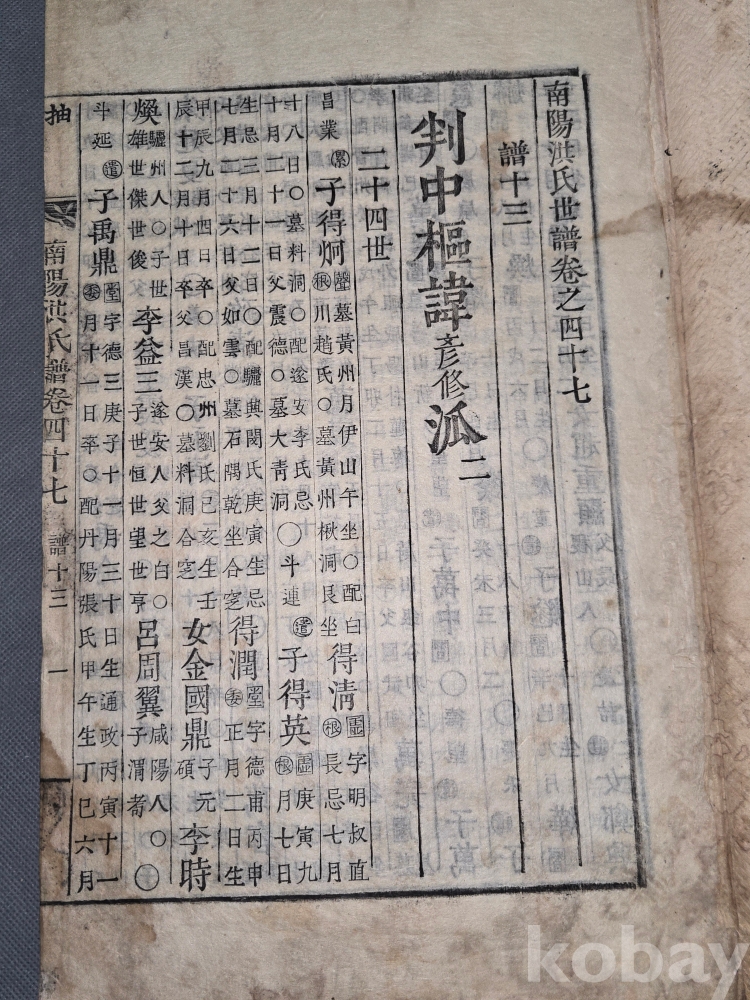 南陽洪氏世譜卷之四十七
譜十三
判中樞諱彥修派二
二十四世
昌業 子得炯 墓黃州月伊山午坐○配白
根 川趙氏○墓黃州楸洞艮坐
得淸 字明叔直
根 長忌七月
十八日○墓料洞○配遂安李氏忌
十月二十一日父震德○墓大靑洞
○斗連 遣 子得英 庚寅九
根 月七日
生忌三月十二日○配驪興閔氏庚寅生忌
七月二十六日父如雲○墓石隅乾坐合窆
得潤 字德甫丙申
委 正月二日生
甲辰九月四日卒○配忠州劉氏己亥生壬
辰十二月十日卒父昌漢○墓料洞合窆
女金國鼎 子元
碩 李時
煥 驪州人○子世
雄世傑世俊
李益三 遂安人父之白○
子恒世望世亨
呂周翼 咸陽人○
子渭耉 ○
斗延 遣 子禹鼎 字德三庚子十一月三十日生通政丙寅十一
委 月十一日卒○配丹陽張氏甲午生丁巳六月
抽
南陽洪氏譜卷四十七 譜十三 一
kobay